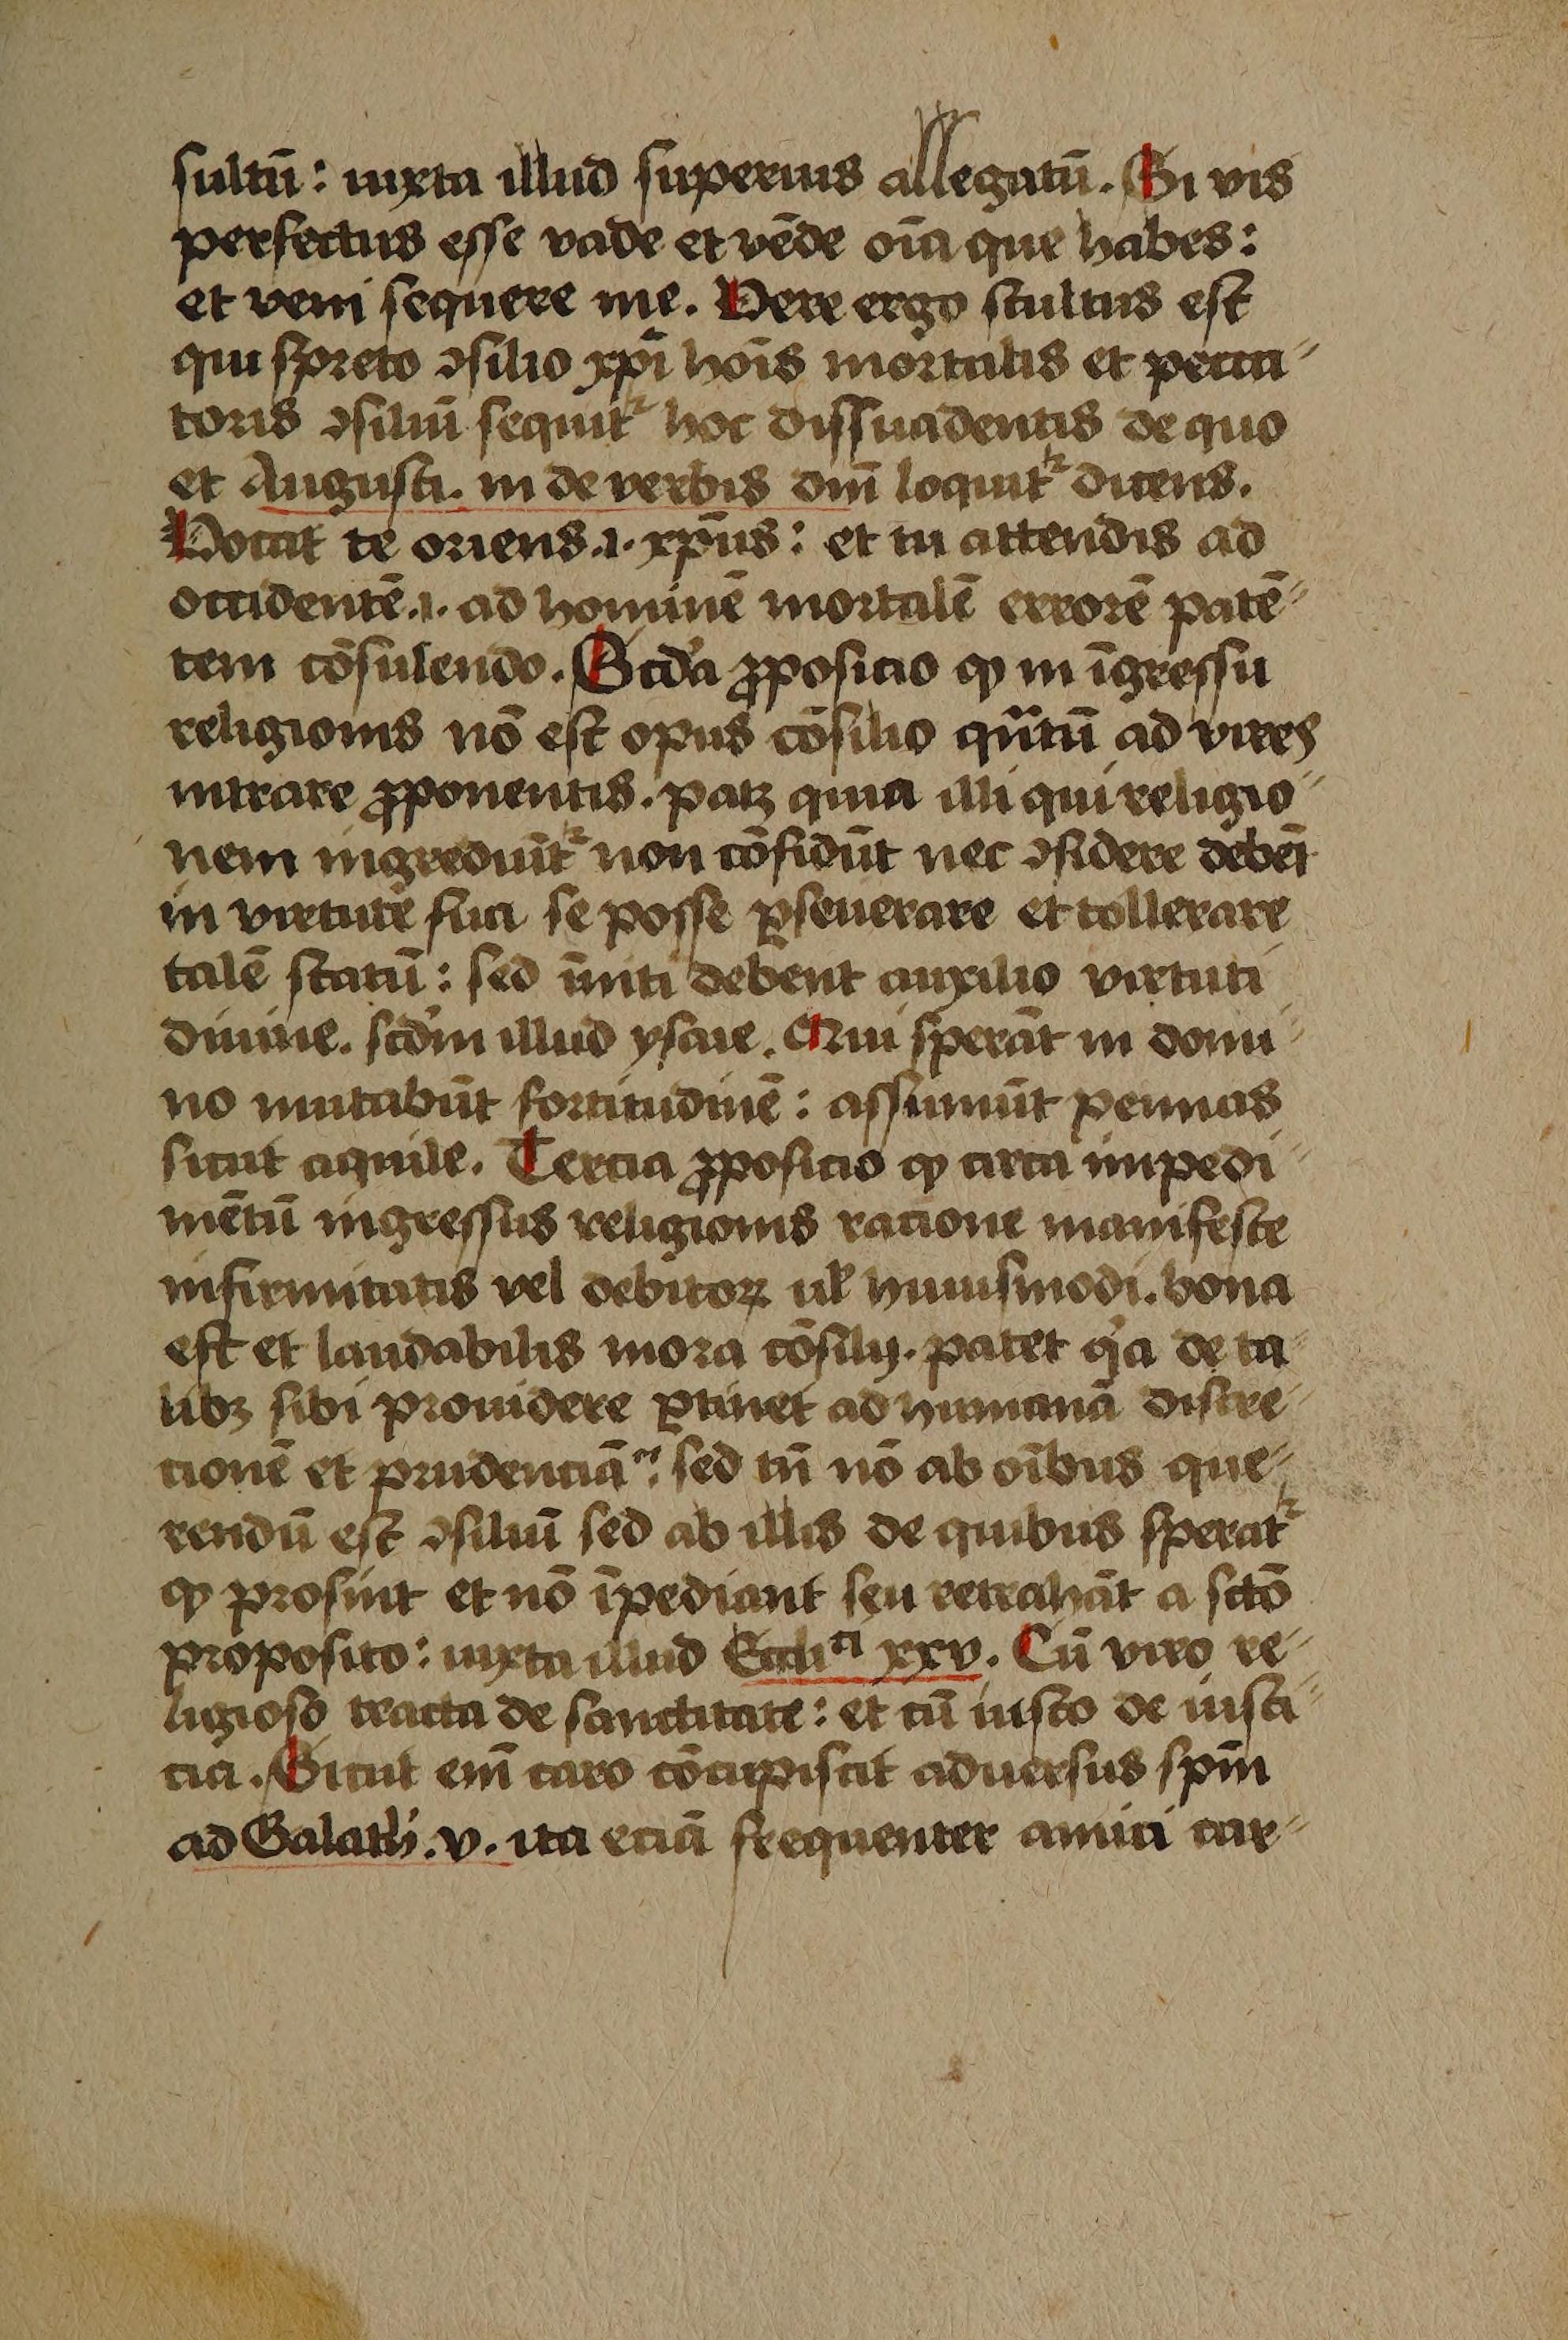 sultū: iuxta illud superius allegatū. Si vis
perfectus esse vade et vēde oīa que habes:
et veni sequere me. Vere ergo stultus est
qui spreto ꝯsilio xpī hoīs mortalis et pecca⸗
toris ꝯsiliū sequitᷣ hoc dissuadentis de quo
et Augusti. in de verbis dnī loquitᷣ dicens.
Vocat te oriens .i. xpūs: et tu attendis ad
occidentē .i. ad hominē mortalē errorē patē⸗
tem cōsulendo. Scd'a ꝓposicio ꝙ in īgressu
religionis nō est opus cōsilio qn̄tū ad vires
intrare ꝓponentis. patꝫ quia illi qui religio⸗
nem ingrediūtᷣ non cōfidūt nec ꝯfidere debēt
in virtute sua se posse ꝑseuerare et tollerare
talē statū: sed īniti debent auxilio virtuti
diuine. scd'm illud ysaie. Qui sperāt in domi⸗
no mutabūt fortitudinē: assumūt pennas
sicut aquile. Tercia ꝓposicio ꝙ circa impedi⸗
mētū ingressus religionis racione manifeste
infirmitatis vel debitoꝝ ul' huiusmodi. bona
est et laudabilis mora cōsilij. patet q'a de ta⸗
libꝫ sibi prouidere ꝑtinet ad humanā discre⸗
cionē et prudenciā: sed tn̄ nō ab oībus que⸗
rendū est ꝯsiliū sed ab illis de quibus speratᷣ
ꝙ prosint et nō īpediant seu retrahāt a sctō
proposito: iuxta illud Eccliᶜⁱ xxv. Cū viro re⸗
ligioso tracta de sanctitate: et cū iusto de iusti⸗
cia. Sicut enī caro cōcupiscit aduersus spm̄
ad Galath. v. ita eciā frequenter amici car⸗